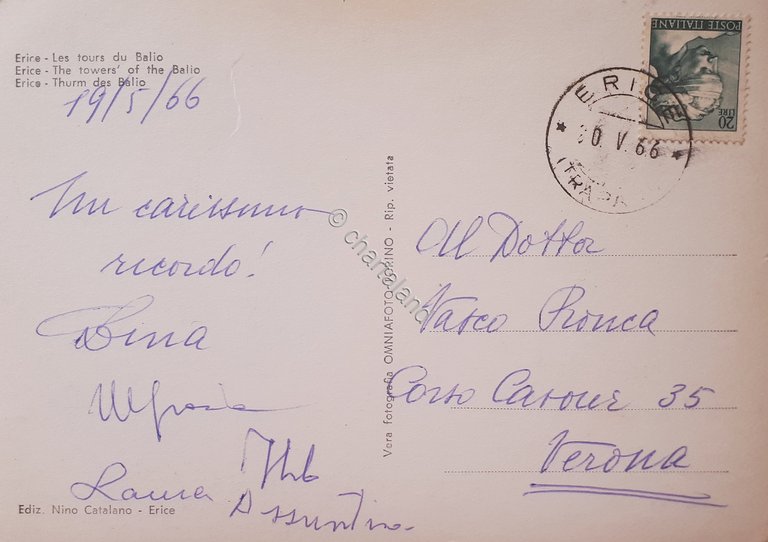 Erice - Les tours du Balio
Erice - The towers' of the Balio
Erice - Thurm des Balio
19/5/66
Un carissimo
ricordo!
Dina
Laura
Assuntina
Ediz. Nino Catalano - Erice
Vera fotografia OMNIAFOTO-TORINO - Rip. vietata
© chartaland
POSTE ITALIANE
LIRE 20
ERICE
20 V. 66
(TRAPANI)
Al Dottor
Vasco Ronca
Corso Cavour 35
Verona